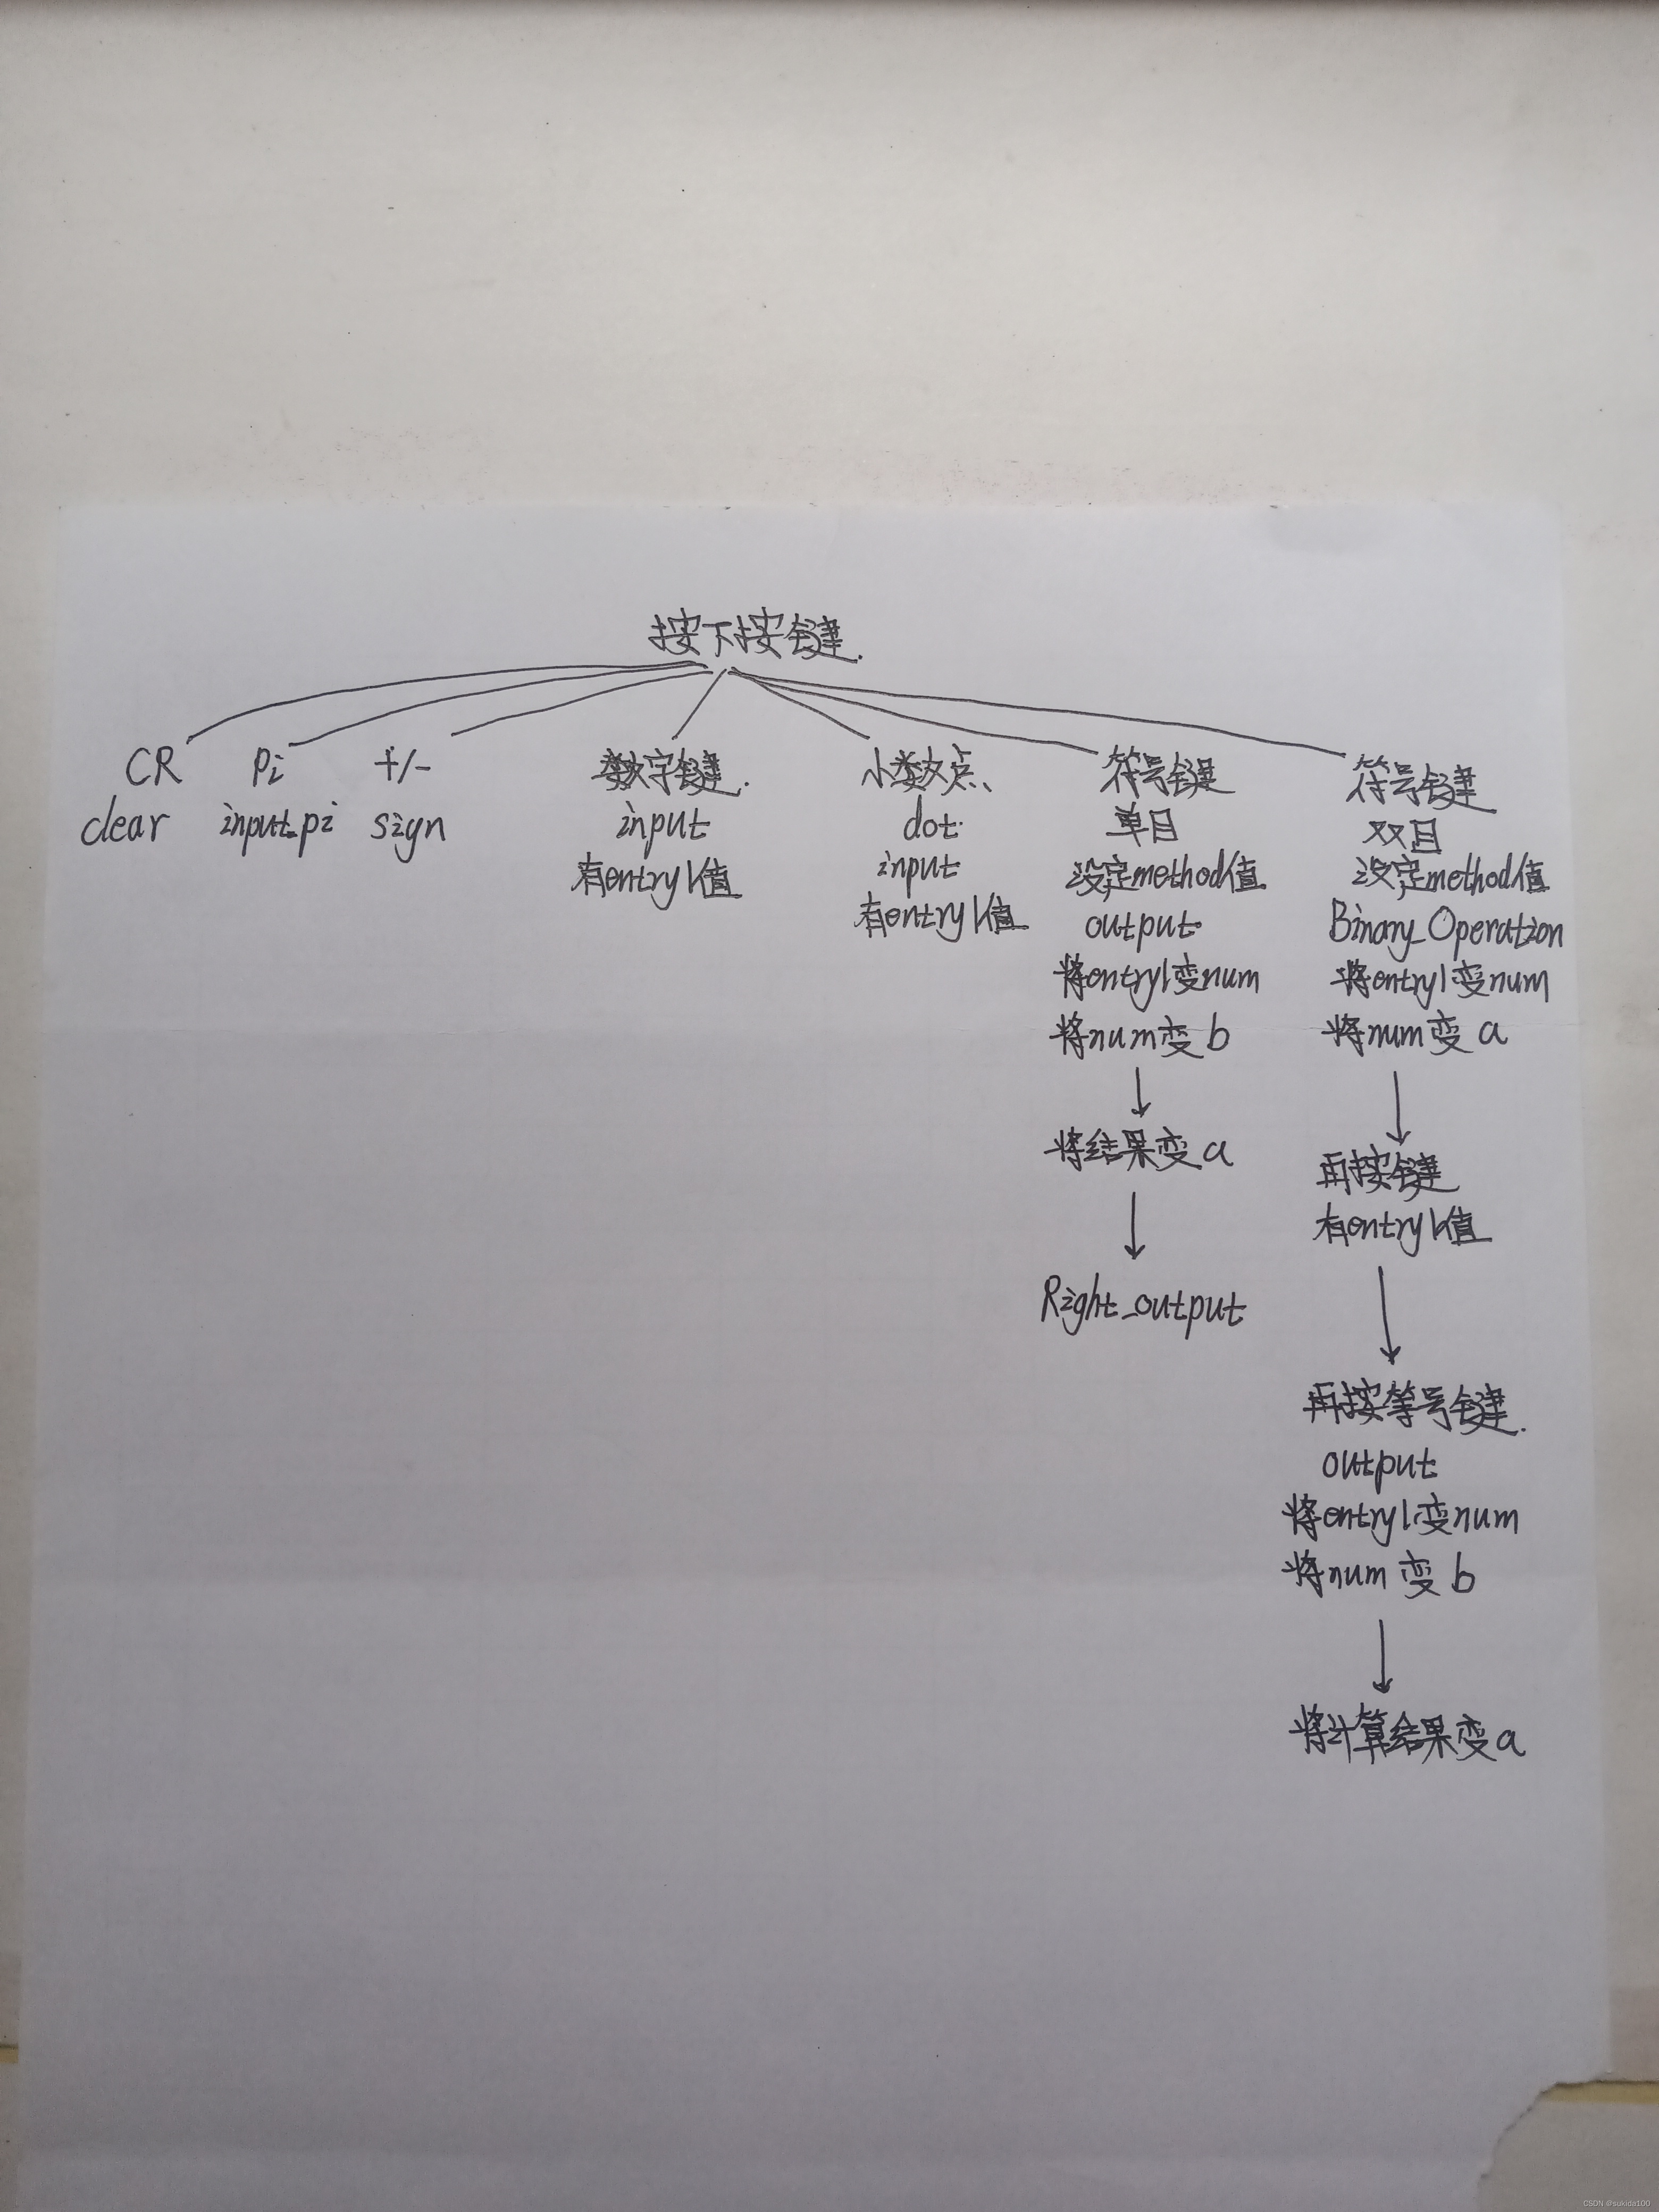 按下按键.
CR
clear
Pi
input_pi
+/-
sign
数字键.
input
有entry1值
小数点、
dot
input
有entry1值
符号键
单目
设定method值
output
将entry1变num
将num变b
将结果变a
Right_output
符号键
双目
设定method值
Binary_Operation
将entry1变num
将num变a
再按键
有entry1值
再按等号键.
output
将entry1变num
将num变b
将计算结果变a
CSDN @sukida100